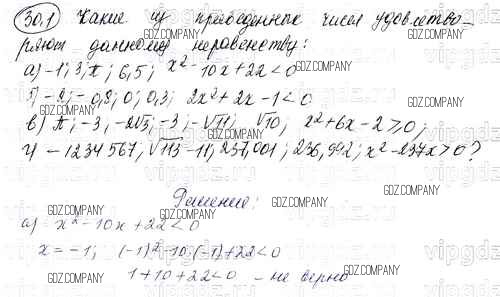 30.1 Какие из приведенных чисел удовлетво-
ряют данному неравенству:
а) -1; 3; π; 6,5; x² - 10x + 22 < 0
б) -2; -0,8; 0; 0,3; 2x² + 2x - 1 < 0
в) π; -3; -2√3; -3; -√11; √10; x² + 6x - 2 ≥ 0;
г) -1234567; √113 - 11; 237,001; 236,992; x² - 237x > 0?
Решение:
а) x² - 10x + 22 < 0
x = -1; (-1)² - 10·(-1) + 22 < 0
1 + 10 + 22 < 0 - не верно
GDZ.COMPANY
vipgdz